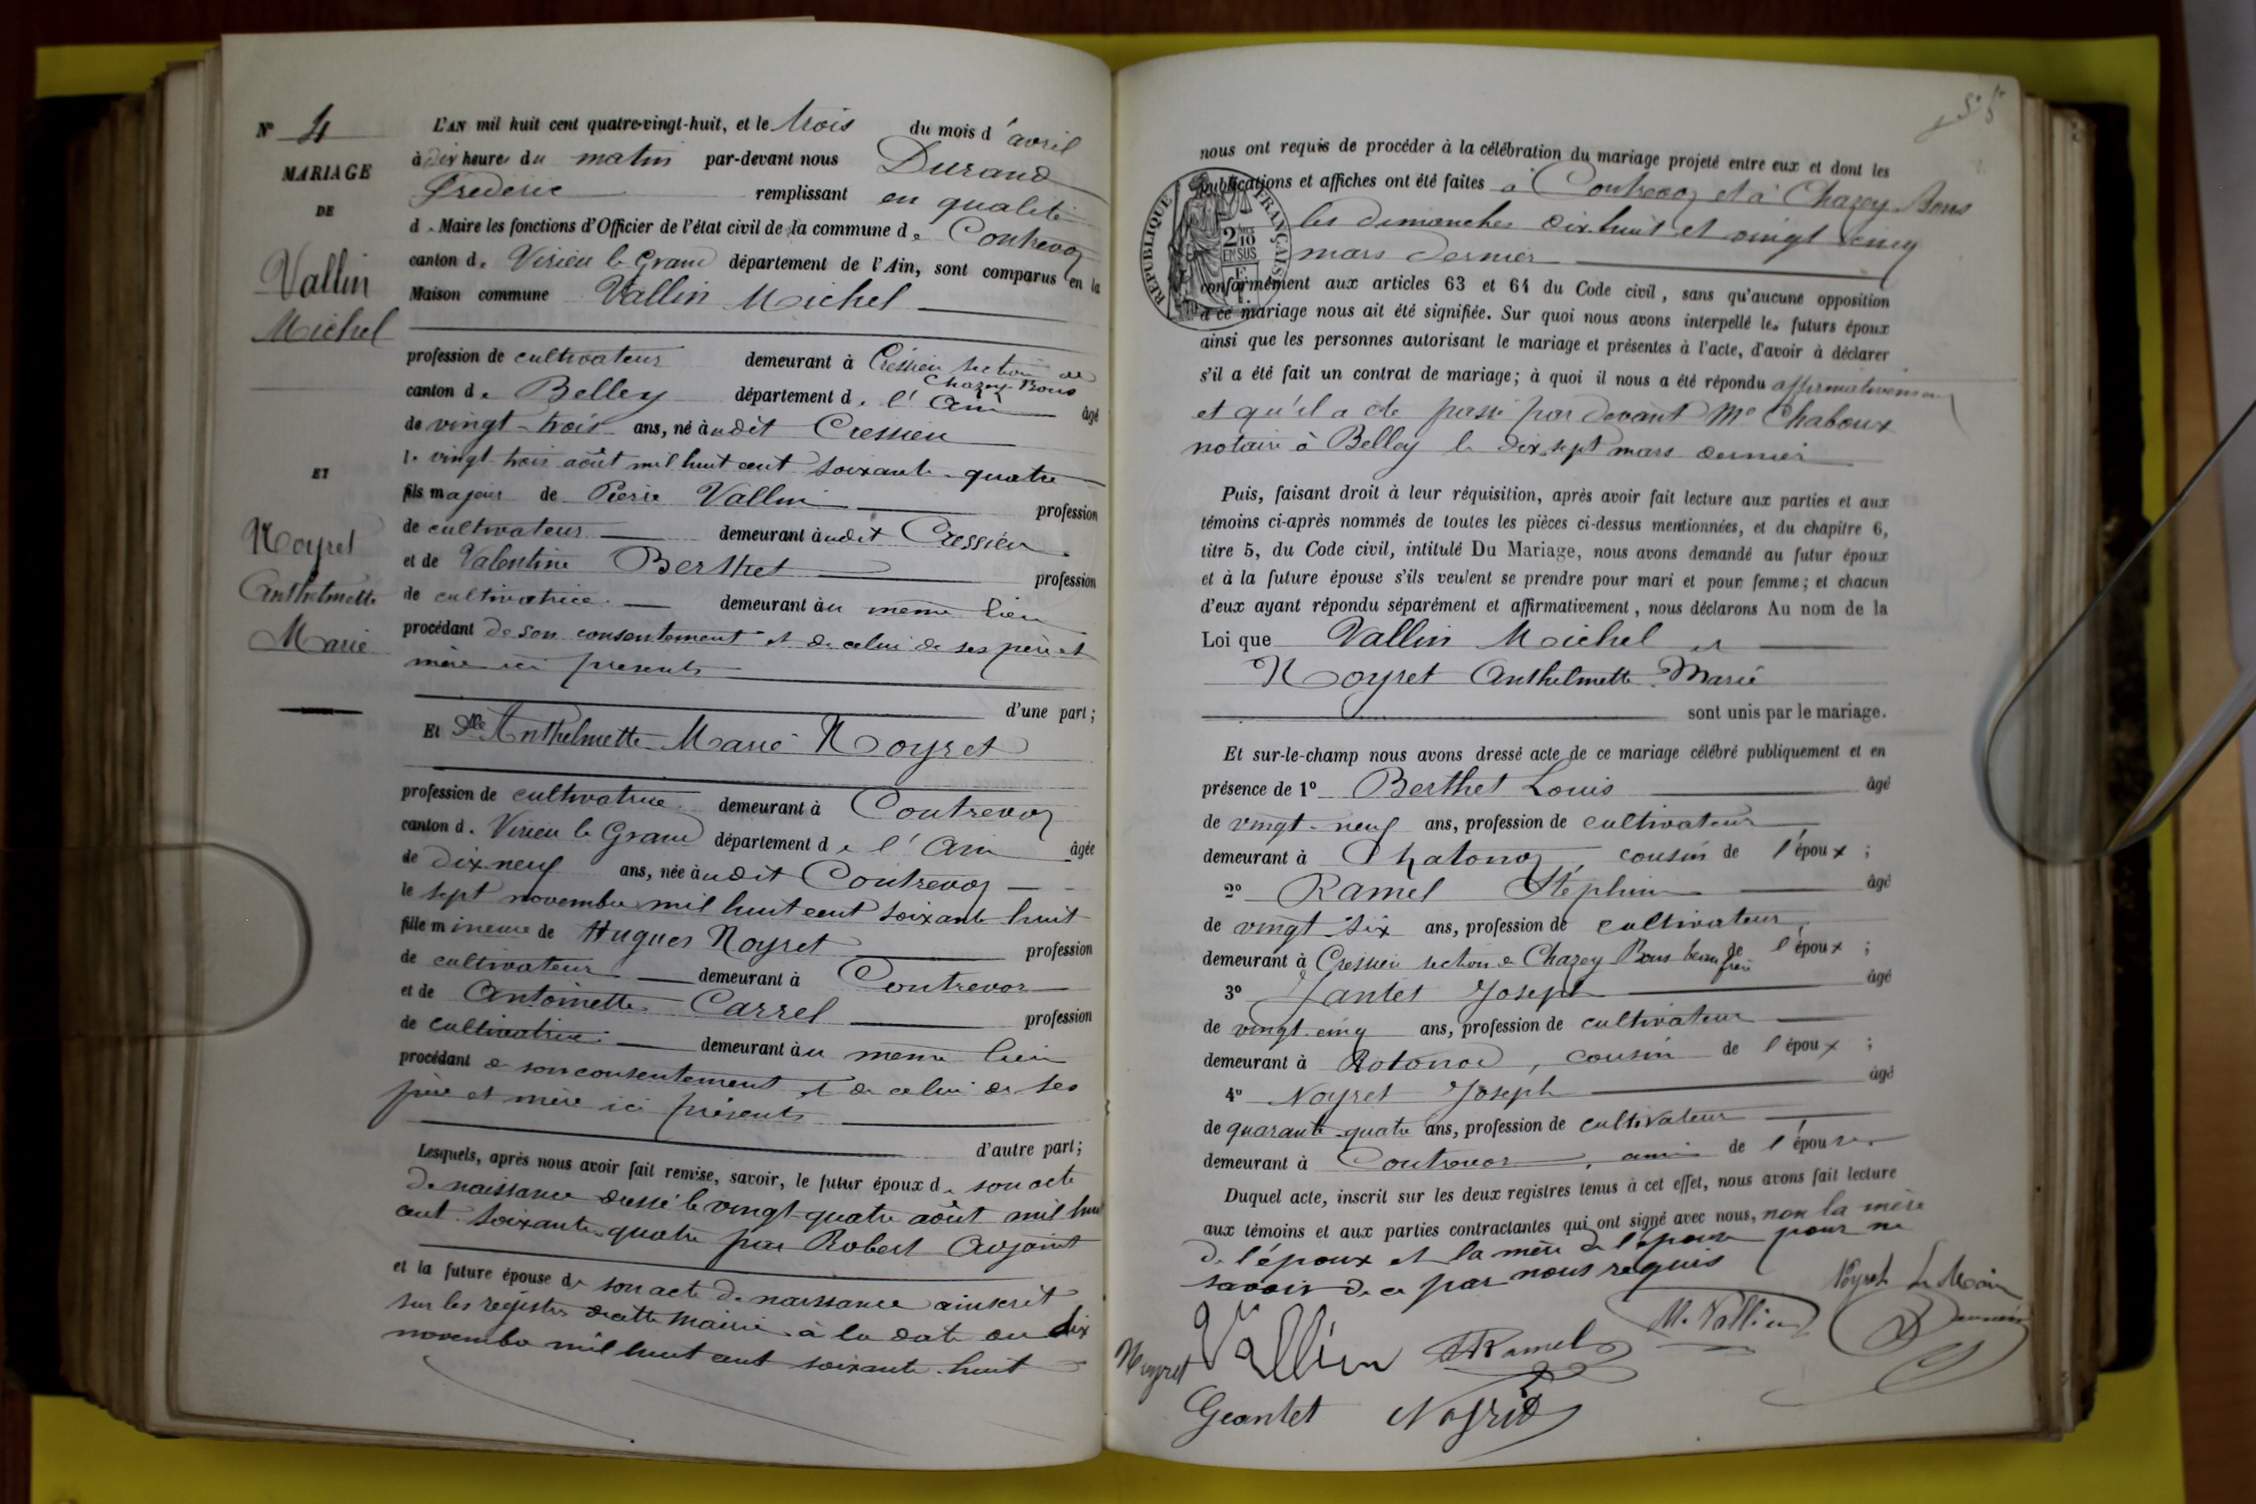 N° 4
MARIAGE
DE
Vallin
Michel
ET
Noyret
Anthelmette
Marie
L'AN mil huit cent quatre-vingt-huit, et le trois du mois d'avril
à dix heures du matin par-devant nous Durand
Frederic remplissant en qualité
d. Maire les fonctions d'Officier de l'état civil de la commune d. Contrevoz
canton d. Virieu le Grand département de l'Ain, sont comparus en la
Maison commune Vallin Michel
profession de cultivateur demeurant à Cressieu section de
Chazey-Bons
canton d. Belley département d. l'Ain âgé
de vingt-trois ans, né audit Cressieu
le vingt trois août mil huit cent soixante-quatre
fils majeur de Pierre Vallin profession
de cultivateur demeurant audit Cressieu
et de Valentine Berthet profession
de cultivatrice demeurant au meme lieu
procédant de son consentement et de celui de ses père et
mère ici presents
d'une part;
Et Dlle Anthelmette Marie Noyret
profession de cultivatrice demeurant à Contrevoz
canton d. Virieu le Grand département de l'Ain âgée
de dix neuf ans, née audit Contrevoz
le sept novembre mil huit cent soixante huit
fille mineure de Hugues Noyret profession
de cultivateur demeurant à Contrevoz
et de Antoinette Carrel profession
de cultivatrice demeurant au meme lieu
procédant de son consentement et de celui de ses
père et mère ici présents
d'autre part;
Lesquels, après nous avoir fait remise, savoir, le futur époux d. son acte
de naissance dressé le vingt-quatre août mil huit
cent soixante-quatre par Robert Adjoint
et la future épouse de son acte de naissance ainscrit
sur les registres de cette mairie à la date du dix
novembre mil huit cent soixante-huit
nous ont requis de procéder à la célébration du mariage projeté entre eux et dont les
publications et affiches ont été faites à Contrevoz et à Chazey-Bons
les dimanches dix huit et vingt cinq
mars dernier
RÉPUBLIQUE FRANÇAISE
2/10
EN SUS
conformément aux articles 63 et 64 du Code civil, sans qu'aucune opposition
à ce mariage nous ait été signifiée. Sur quoi nous avons interpellé les futurs époux
ainsi que les personnes autorisant le mariage et présentes à l'acte, d'avoir à déclarer
s'il a été fait un contrat de mariage; à quoi il nous a été répondu affirmativement
et qu'il a été passé par devant Me Chaboux
notaire à Belley le dix sept mars dernier
Puis, faisant droit à leur réquisition, après avoir fait lecture aux parties et aux
témoins ci-après nommés de toutes les pièces ci-dessus mentionnées, et du chapitre 6,
titre 5, du Code civil, intitulé Du Mariage, nous avons demandé au futur époux
et à la future épouse s'ils veulent se prendre pour mari et pour femme; et chacun
d'eux ayant répondu séparément et affirmativement, nous déclarons Au nom de la
Loi que Vallin Michel et
Noyret Anthelmette Marie
sont unis par le mariage.
Et sur-le-champ nous avons dressé acte de ce mariage célébré publiquement et en
présence de 1° Berthet Louis âgé
de vingt-neuf ans, profession de cultivateur
demeurant à Chatonoz, cousin de l'époux;
2° Ramel Stéphin âgé
de vingt six ans, profession de cultivateur,
demeurant à Cressieu section de Chazey Bons beau frère de l'époux;
3° Jantet Joseph âgé
de vingt cinq ans, profession de cultivateur
demeurant à Rotonod, cousin de l'époux;
4° Noyret Joseph âgé
de quarante-quatre ans, profession de cultivateur
demeurant à Contrevoz, ami de l'épouse.
Duquel acte, inscrit sur les deux registres tenus à cet effet, nous avons fait lecture
aux témoins et aux parties contractantes qui ont signé avec nous, non la mère
de l'époux et la mère de l'épouse pour ne
savoir de ce par nous requis
Noyret Le Maire
M. Vallin
Noyret Vallin Ramel
Geantet Noyret